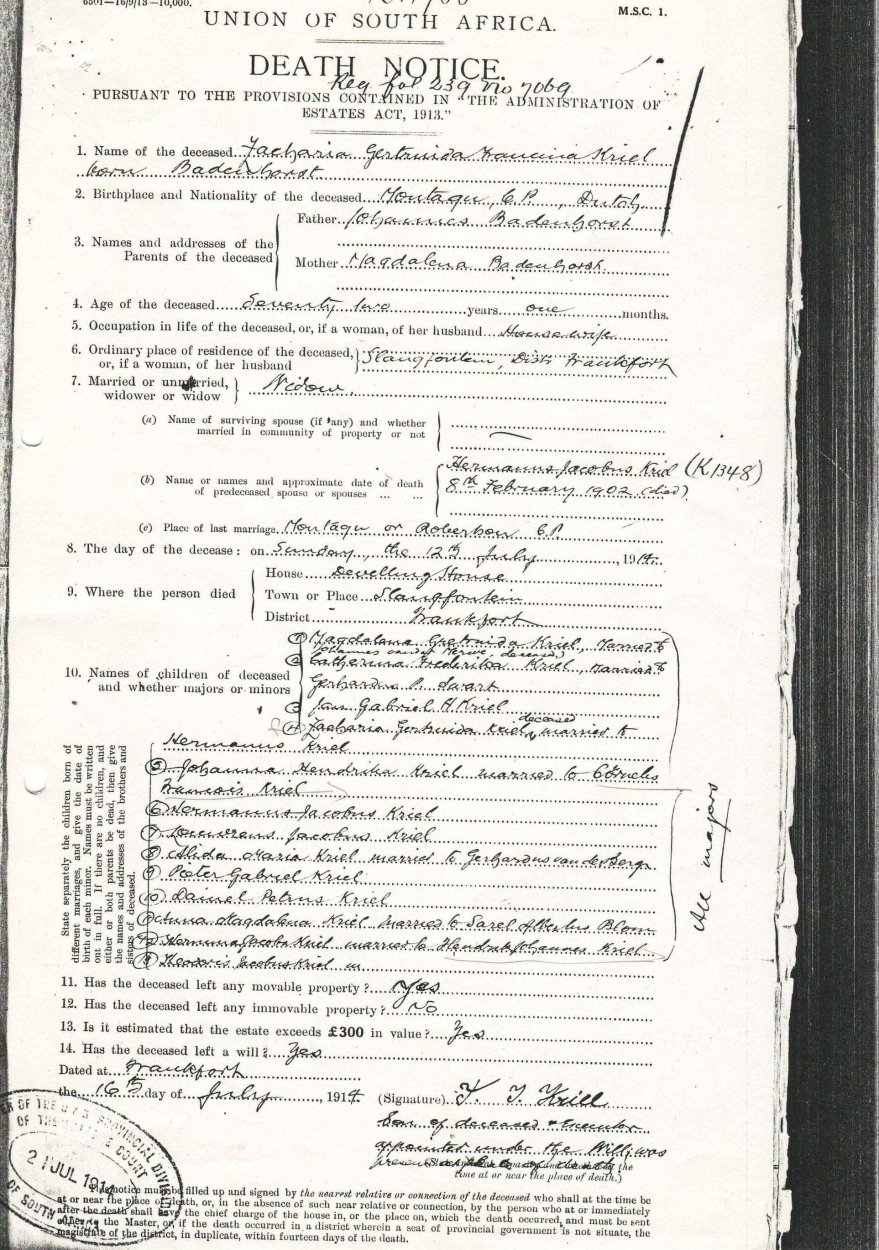 6501—16/9/13—10,000.
M.S.C. 1.
UNION OF SOUTH AFRICA.
DEATH NOTICE.
Reg fol 239 No 7069
PURSUANT TO THE PROVISIONS CONTAINED IN "THE ADMINISTRATION OF
ESTATES ACT, 1913."
1. Name of the deceased Zacharia Gertruida Francina Kriel
born Badenhorst
2. Birthplace and Nationality of the deceased Montagu, C.P. Dutch
3. Names and addresses of the Parents of the deceased
Father Johannes Badenhorst
Mother Magdalena Badenhorst
4. Age of the deceased Seventy two years one months.
5. Occupation in life of the deceased, or, if a woman, of her husband Housewife
6. Ordinary place of residence of the deceased, or, if a woman, of her husband Slangfontein, Distr Frankfort
7. Married or unmarried, widower or widow Widow.
(a) Name of surviving spouse (if any) and whether married in community of property or not
(b) Name or names and approximate date of death of predeceased spouse or spouses ... ...
Hermanus Jacobus Kriel (K1348)
8th February 1902 (died)
(c) Place of last marriage Montagu or Robertson C.P.
8. The day of the decease: on Sunday, the 12th July, 1914.
9. Where the person died
House Dwelling House
Town or Place Slangfontein
District Frankfort
10. Names of children of deceased and whether majors or minors
① Magdalena Gertruida Kriel, Married to
Johannes van der Merwe, deceased
② Catherina Frederika Kriel, married to
Gerhardus P. Swart
③ Jan Gabriel H Kriel
④ Zacharia Gertruida Kriel, deceased married to
Hermanus Kriel
⑤ Johanna Hendrika Kriel married to Cornelis
Francois Kriel
⑥ Hermanus Jacobus Kriel
⑦ Louwrens Jacobus Kriel
⑧ Alida Maria Kriel married to Gerhardus van den Bergh
⑨ Pieter Gabriel Kriel
⑩ Daniel Petrus Kriel
⑪ Anna Magdalena Kriel married to Sarel Albertus Blom
⑫ Hermina Kriel married to Hendrik Johannes Kriel
⑬ Jacobus Kriel
All majors
State separately the children born of
different marriages, and give the date of
birth of each minor. Names must be written
out in full. If there are no children, and
either or both parents be dead, then give
the names and addresses of the brothers and
sisters of deceased.
11. Has the deceased left any movable property? Yes
12. Has the deceased left any immovable property? No
13. Is it estimated that the estate exceeds £300 in value? Yes
14. Has the deceased left a will? Yes
Dated at Frankfort
the 16th day of July, 1914
(Signature)
Son of deceased & Executor
appointed under the Will, was
present
time at or near the place of death.)
21 JUL 1914
PROVINCIAL DIVISION
OF SOUTH AFRICA
This notice must be filled up and signed by the nearest relative or connection of the deceased who shall at the time be
at or near the place of death, or, in the absence of such near relative or connection, by the person who at or immediately
after the death shall have the chief charge of the house in, or the place on, which the death occurred, and must be sent
either to the Master, or, if the death occurred in a district wherein a seat of provincial government is not situate, the
magistrate of the district, in duplicate, within fourteen days of the death.